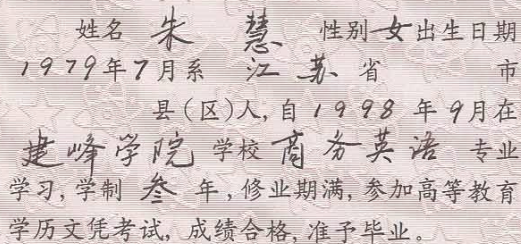 姓名 朱 慧 性别 女 出生日期
1979年7月系 江 苏 省 市
县(区)人,自1998年9月在
建峰学院 学校 商务英语 专业
学习,学制 叁 年,修业期满,参加高等教育
学历文凭考试,成绩合格,准予毕业。